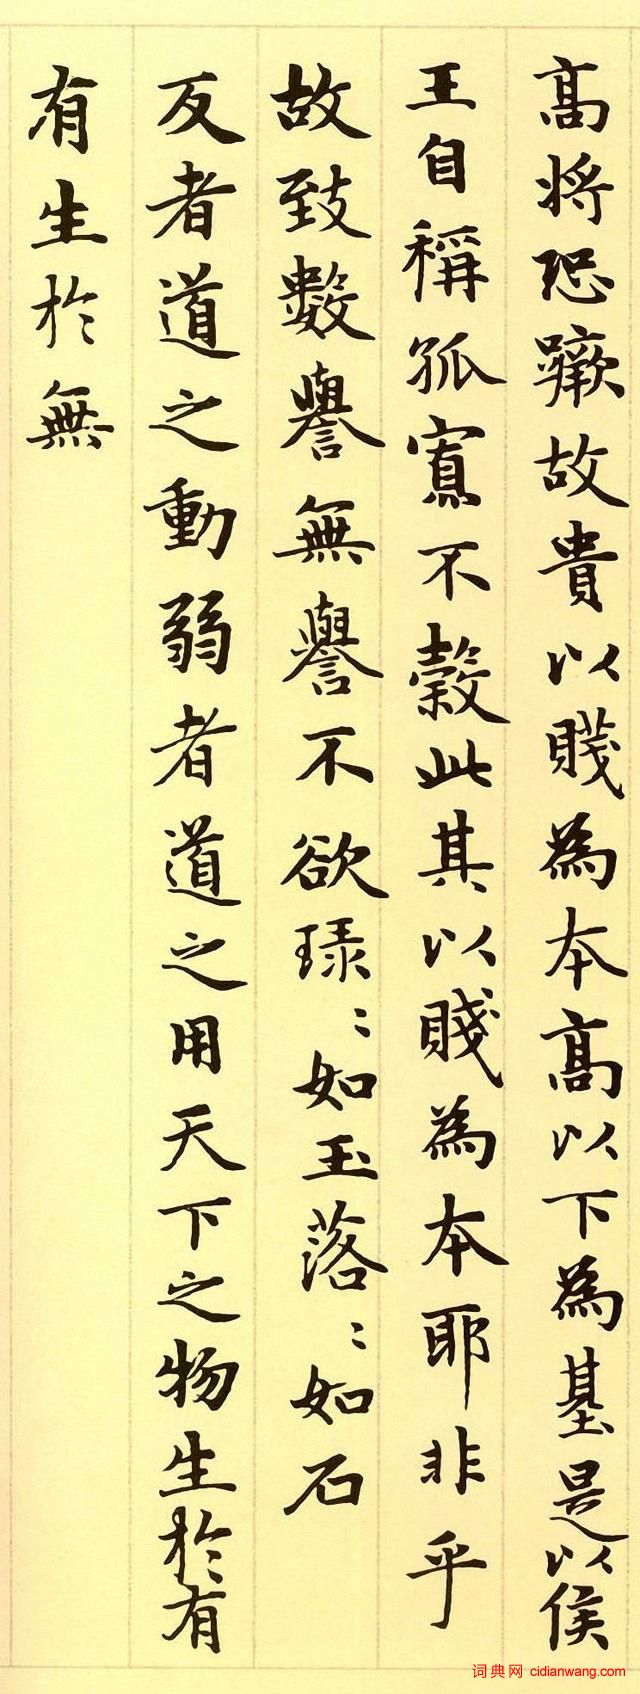 高将恐蹶故貴以賤為本高以下為基是以侯
王自稱孤寡不穀此其以賤為本耶非乎
故致數譽無譽不欲琭〻如玉落〻如石
反者道之動弱者道之用天下之物生於有
有生於無
词典网 cidianwang.com